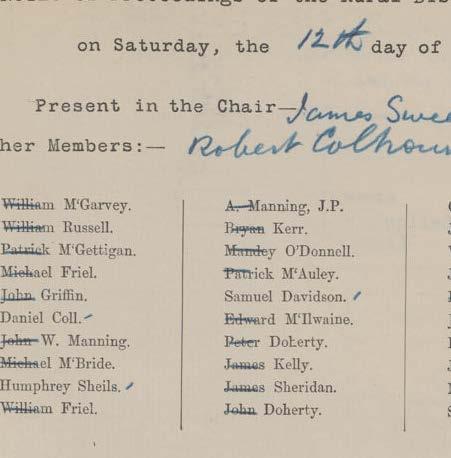 on Saturday, the 12th day of
Present in the Chair—James
her Members:— Robert Colhoun
William M'Garvey.
William Russell.
Patrick M'Gettigan.
Michael Friel.
John Griffin.
Daniel Coll.
John W. Manning.
Michael M'Bride.
Humphrey Sheils.
William Friel.
A. Manning, J.P.
Bryan Kerr.
Mandey O'Donnell.
Patrick M'Auley.
Samuel Davidson.
Edward M'Ilwaine.
Peter Doherty.
James Kelly.
James Sheridan.
John Doherty.